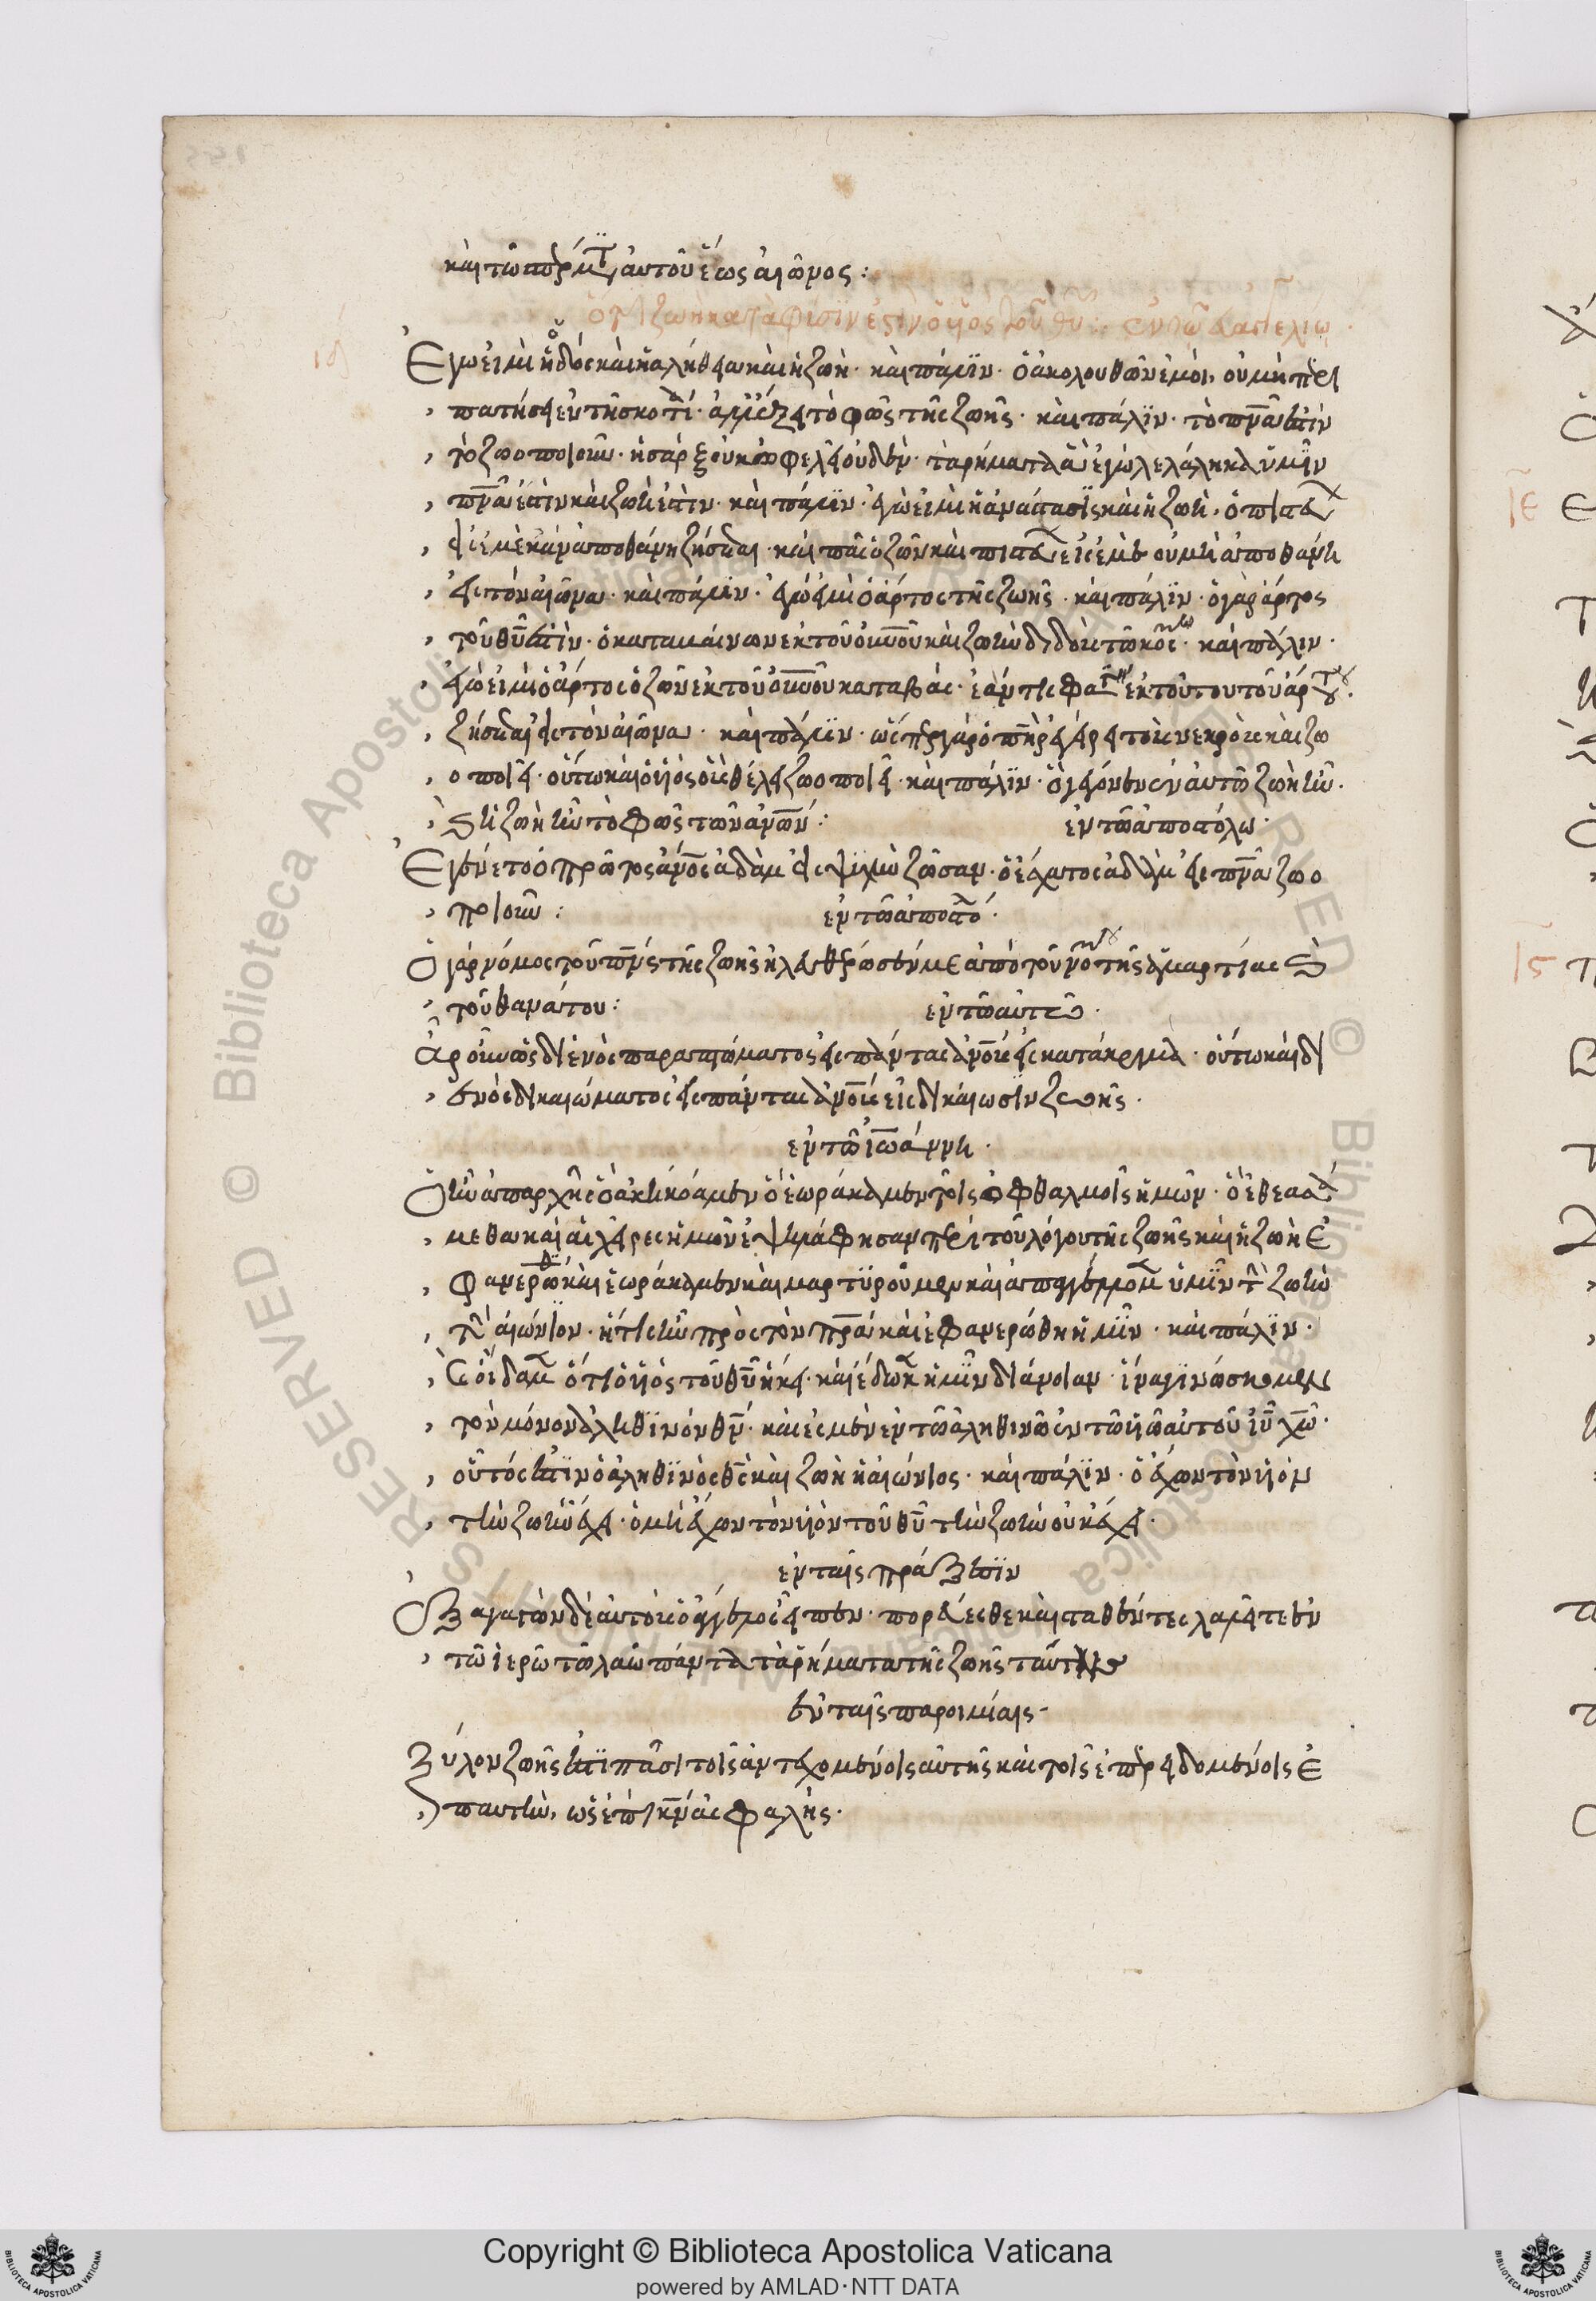 καὶ τῶ σπέρματι αὐτοῦ ἕως αἰῶνος:
ιδ ὅτι ζωὴ κατὰ φύσιν ἐστὶν ὁ υἱὸς τοῦ θυ: ἐν τῶ εὐαγγελίω.
Ἐγώ εἰμι ἡ ὁδὸς καὶ ἡ ἀλήθεια καὶ ἡ ζωὴ. καὶ πάλιν. ὁ ἀκολουθῶν ἐμοὶ, οὐ μὴ περι
πατήσει ἐν τῆ σκοτί. ἀλλ' ἕξει τὸ φῶς τῆς ζωῆς. καὶ πάλιν. τὸ πνα ἐστὶν
τὸ ζωοποιοῦν. ἡ σὰρξ οὐκ ὠφελεῖ οὐδὲν. τὰ ρήματα ἃ ἐγὼ λελάληκα ὑμῖν
πνα ἐστὶν καὶ ζωὴ ἐστιν. καὶ πάλιν. ἐγὼ εἰμι ἡ ἀνάστασϊς καὶ ἡ ζωὴ. ὁ πιστεύων
εἰς ἐμὲ κἂν ἀποθάνη ζήσεται. καὶ πᾶς ὁ ζῶν καὶ πιστεύων εἰς ἐμὲ οὐ μὴ ἀποθάνη
εἰς τὸν αἰῶνα. καὶ πάλιν. ἐγώ εἰμι ὁ ἄρτος τῆς ζωῆς. καὶ πάλϊν. ὁ γὰρ ἄρτος
τοῦ θυ ἐστὶν. ὁ καταβαίνων ἐκ τοῦ οὐνοῦ καὶ ζωὴν διδοὺς τῶ κόσμω. καὶ πάλιν.
ἐγὼ εἰμι ὁ ἄρτος ὁ ζῶν ἐκ τοῦ οὐνοῦ καταβὰς. ἐάν τις φάγη ἐκ τούτου τοῦ ἄρτου.
ζήσεται εἰς τὸν αἰῶνα. καὶ πάλιν. ὥσπερ γὰρ ὁ πηρ ἐγείρει τοὺς νεκροὺς καὶ ζω
οποιεῖ. οὕτω καὶ ὁ υἱὸς οὓς θέλει ζωοποιεῖ. καὶ πάλϊν. ὃ γέγονεν ἐν αὐτῶ ζωὴ ἦν.
καὶ ἡ ζωὴ ἦν τὸ φῶς τῶν ἀνων: ἐν τῶ ἀποστόλω.
Ἐγένετο ὁ πρῶτος ἄνος ἀδὰμ εἰς ψυχὴν ζῶσαν. ὁ ἔσχατος ἀδὰμ εἰς πνα ζωο
ποιοῦν: ἐν τῶ ἀποστό.
Ὁ γὰρ νόμος τοῦ πνς τῆς ζωῆς ἠλευθέρωσέν με ἀπὸ τοῦ νόμου τῆς ἁμαρτίας καὶ
τοῦ θανάτου: ἐν τῶ αὐτῶ.
Ἄρ οὖν ὡς δι ἑνὸς παραπτώματος εἰς πάντας ἀνους εἰς κατάκριμα. οὕτω καὶ δι
ἑνὸς δικαιώματος εἰς πάντας ἀνους εἰς δικαίωσϊν ζωῆς.
ἐν τῶ ἰωάννη.
Ὃ ἦν ἀπ αρχῆς ὃ ἀκηκόαμεν ὃ ἑωράκαμεν τοῖς ὀφθαλμοῖς ἡμῶν. ὃ ἐθεασά
μεθα καὶ αἱ χεῖρες ἡμῶν ἐψηλάφησαν περὶ τοῦ λόγου τῆς ζωῆς καὶ ἡ ζωὴ ἐ
φανερώθη καὶ ἑωράκαμεν καὶ μαρτϋροῦμεν καὶ ἀπαγγέλλομεν ὑμῖν τὴν ζωὴν
τὴν αἰώνϊον. ἥτις ἦν πρὸς τὸν πρα καὶ ἐφανερώθη ἡμῖν. καὶ πάλϊν.
καὶ οἴδαμεν ὅτι ὁ υἱὸς τοῦ θυ ἥκει. καὶ ἔδωκεν ἡμῖν διάνοιαν. ἵνα γϊνώσκομεν
τὸν μόνον ἀληθϊνὸν θν. καὶ ἐσμὲν ἐν τῶ ἀληθινῶ ἐν τῶ υἱῶ αὐτοῦ ιυ χω.
οὗτός ἐστϊν ὁ ἀληθϊνὸς θς καὶ ζωὴ ἡ αἰώνιος. καὶ πάλϊν. ὁ ἔχων τὸν υἱὸν
τὴν ζωὴν ἔχει. ὁ μὴ ἔχων τὸν υἱὸν τοῦ θυ τὴν ζωὴν οὐκ ἔχει.
ἐν ταῖς πράξεσϊν
Ἐξαγαγὼν δὲ αὐτοὺς ὁ ἄγγελος εἶπεν. πορεύεσθε καὶ σταθέντες λαλεῖτε ἐν
τῶ ἱερῶ τῶ λαῶ πάντα τὰ ρήματα τῆς ζωῆς ταύτης
ἐν ταῖς παροιμίαις.
Ξύλον ζωῆς ἐστϊ πᾶσι τοῖς ἀντεχομένοις αὐτῆς καὶ τοῖς ἐπερειδομένοις ἐ
π αυτὴν, ὡς ἐπὶ κν ἀσφαλής.
Copyright © Biblioteca Apostolica Vaticana
powered by AMLAD·NTT DATA